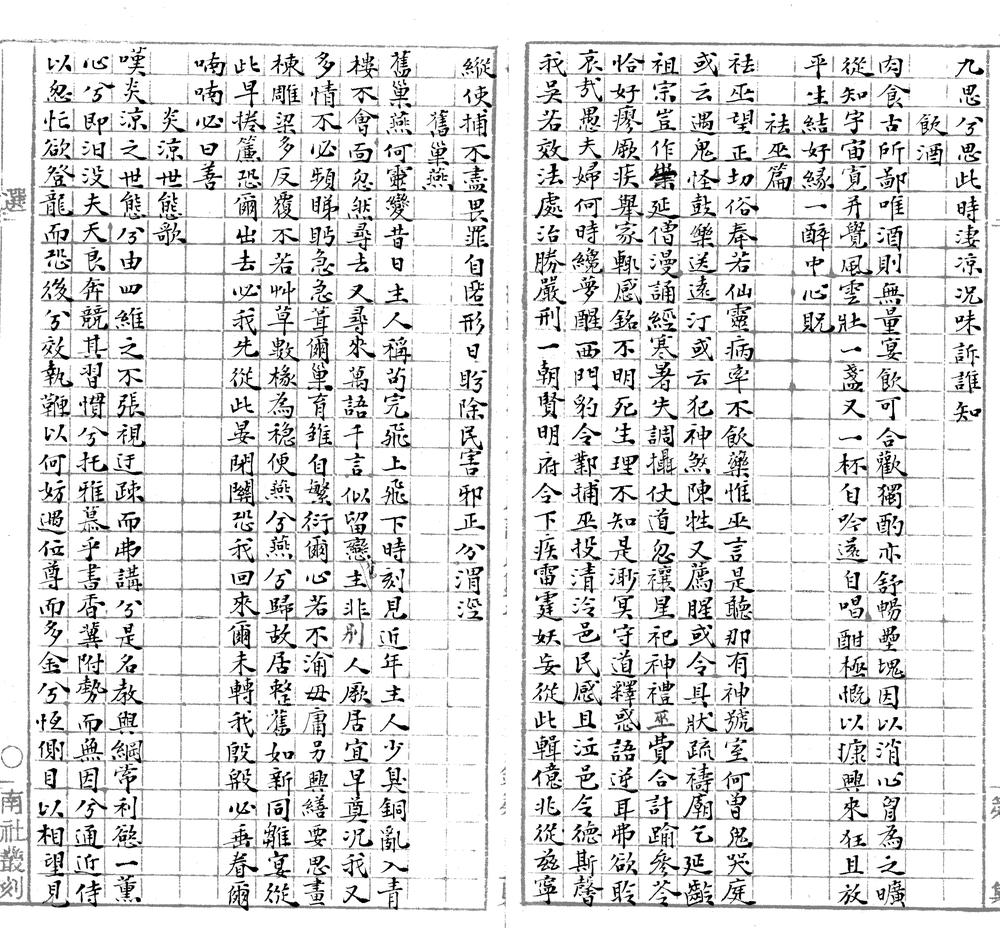 九思兮思此時淒凉况味訴誰知
飲酒
肉食古所鄙唯酒則無量宴飲可合歡獨酌亦舒暢壘塊因以消心胷為之曠
從知宇宙寬并覺風雲壯一盞又一杯自吟還自唱酣極慨以慷興來狂且放
平生結好緣一醉中心貺
祛巫篇
祛巫望正切俗奉若仙靈病率不飲藥惟巫言是聽那有神號室何曾鬼哭庭
或云遇鬼怪鼓樂送遠汀或云犯神煞陳牲又薦腥或令具狀疏禱廟乞延齡
祖宗豈作祟延僧漫誦經寒暑失調攝仗道忽禳星祀神禮巫費合計踰參苓
恰好廖厥疾舉家輒感銘不明死生理不知是淅冥守道釋惑語逆耳弗欲聆
哀哉愚夫婦何時纔夢醒西門豹令鄴捕巫投清泠邑民感且泣邑令德斯馨
我吳若效法處治勝嚴刑一朝賢明府令下疾雷霆妖妄從此輯億兆從茲寧
縱使捕不盡畏罪自匿形日盼除民害邪正分渭涇
舊巢燕
舊巢燕何靈變昔日主人稱苟完飛上飛下時刻見近年主人少臭銅亂入青
樓不會面忽然尋去又尋來萬語千言似留戀主非別人厥居宜早奠况我又
多情不必頻睇眄急急葺爾巢育雏自繁衍爾心若不淪毋庸另興繕要思畫
棟雕梁多反覆不若艸草數椽為穏便燕兮燕兮歸故居整舊如新同離宴從
此早捲簾恐爾出去必我先從此晏閉關恐我回來爾未轉我殷殷必垂眷爾
喃喃必曰善
炎涼世態歌
嘆炎涼之世態兮由四維之不張視迂疎而弗講兮是名教與綱常利慾一薰
心兮即汨没夫天良奔競其習慣兮托雅慕乎書香冀附勢而無因兮通近侍
以忽忙欲登龍而恐後兮效執鞭以何妨遇位尊而多金兮恒側目以相望見
選
〇
南社叢刻